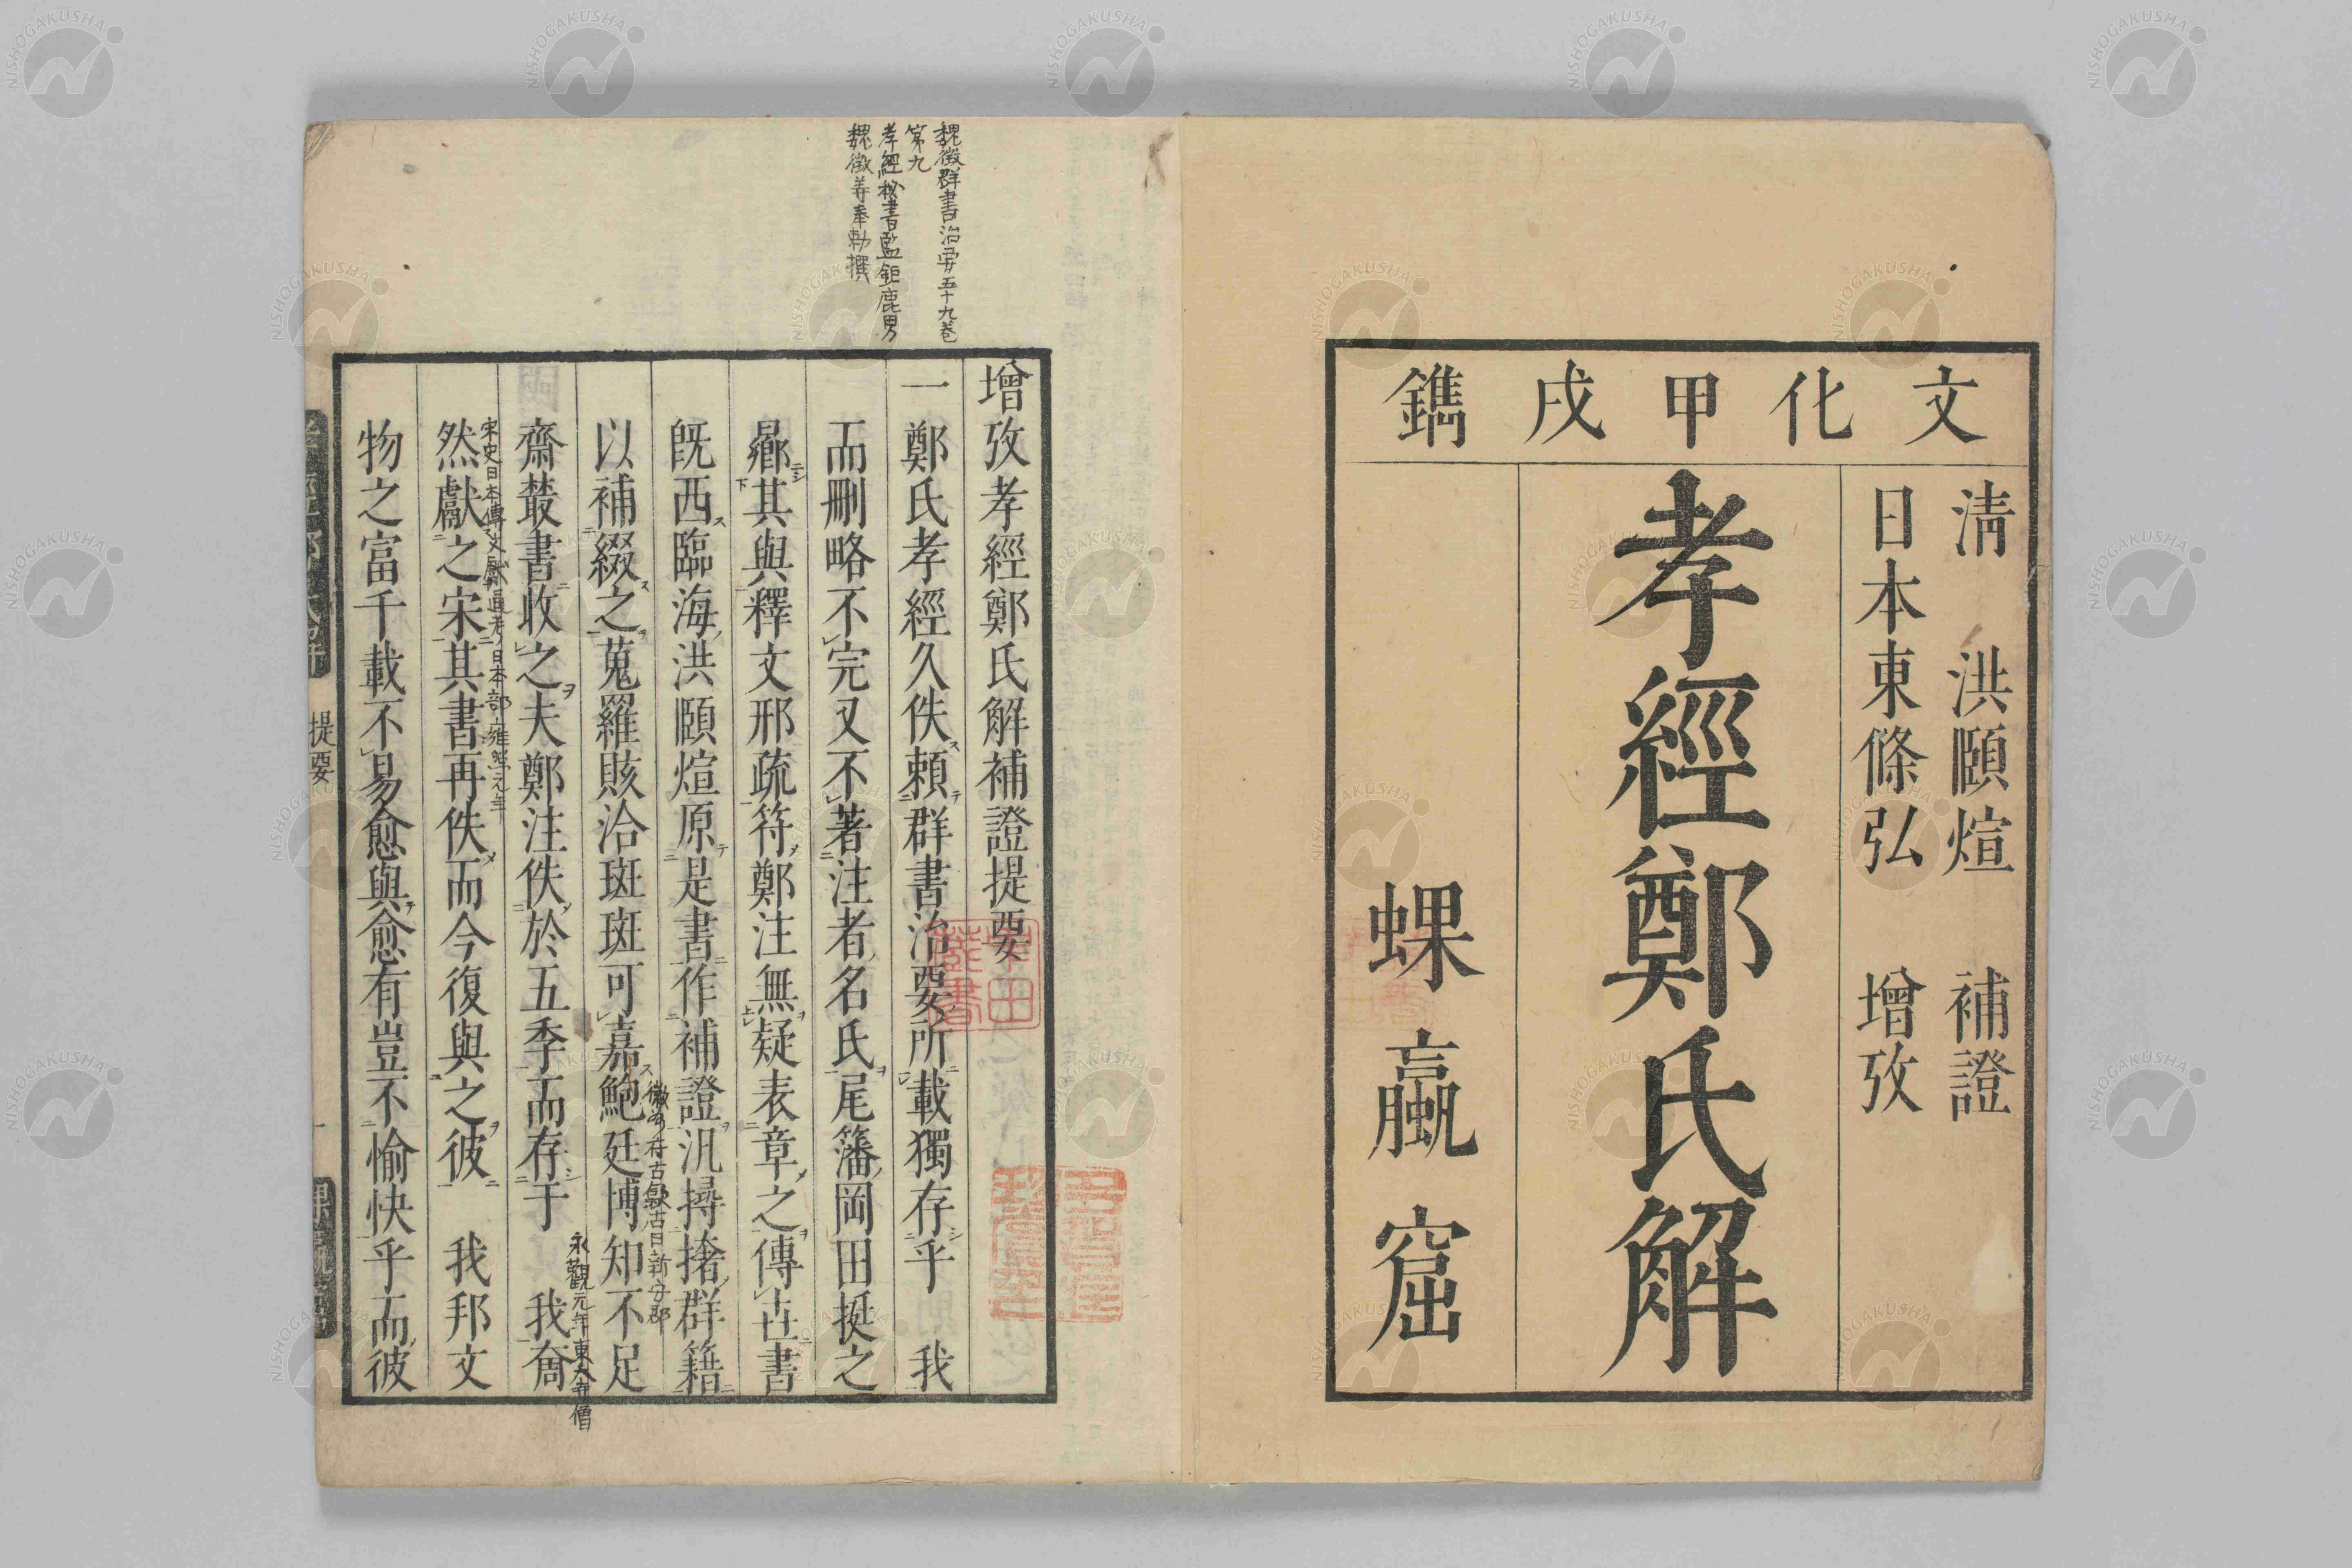 文化甲戌鐫
清　洪頤煊　補證
日本東條弘　增攷
孝經鄭氏解
蜾蠃窟
魏徵群書治要五十九卷
第九
孝經秘書監鉅鹿男
魏徵等奉勅撰
增攷孝經鄭氏解補證提要
一鄭氏孝經久佚賴群書治要所載獨存乎　我
而刪略不完又不著注者名氏尾籓岡田挺之
曏其與釋文邢疏符鄭注無疑表章之傳世書
既西臨海洪頤煊原是書作補證汎撏撦群籍
以補綴之蒐羅賅洽斑斑可嘉鮑廷博知不足
齋叢書收之夫鄭注佚於五季而存于　我奝
永觀元年東大寺僧
然獻之宋其書再佚而今復與之彼　我邦文
宋史日本傳文獻通考日本部雍熙元年
物之富千載不易愈與愈有豈不愉快乎而彼
提要
一
NISHOGAKUSHA